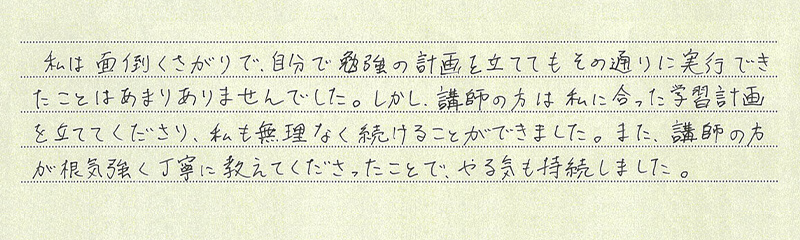 私は面倒くさがりで、自分で勉強の計画を立ててもその通りに実行でき
たことはあまりありませんでした。しかし、講師の方は私に合った学習計画
を立ててくださり、私も無理なく続けることができました。また、講師の方
が根気強く丁寧に教えてくださったことで、やる気も持続しました。